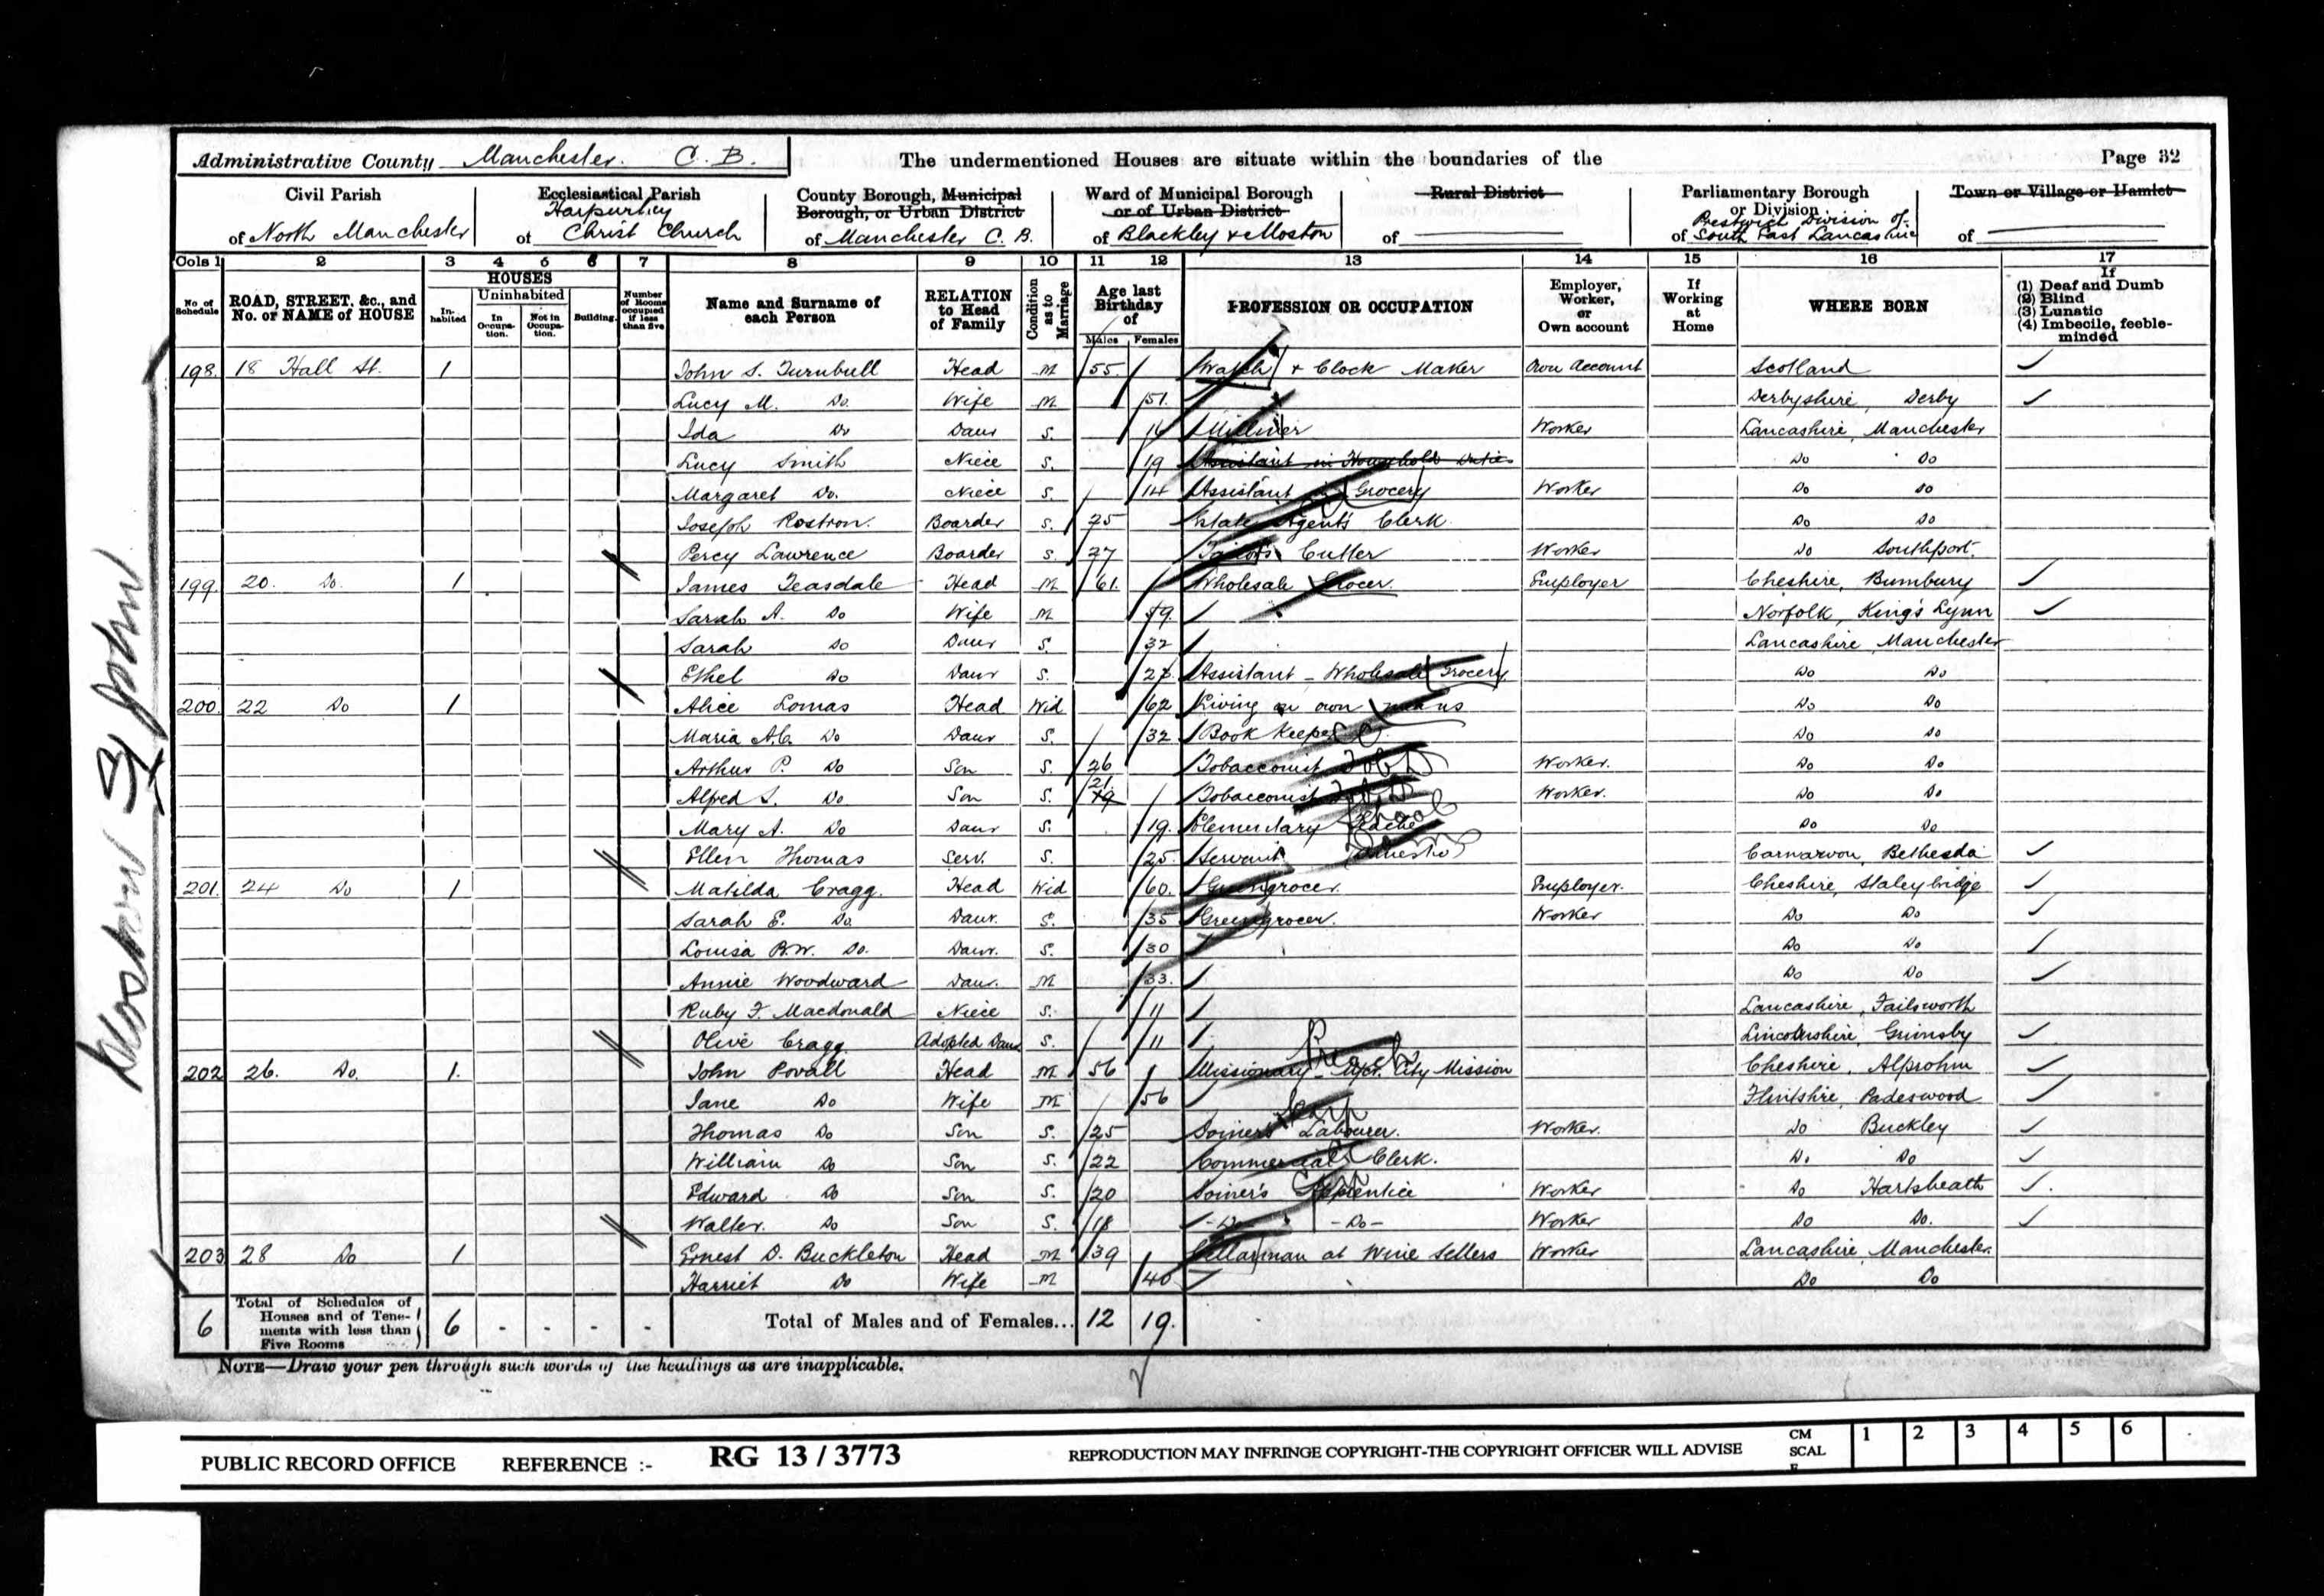 Administrative County Manchester. C. B. The undermentioned Houses are situate within the boundaries of the Page 32
Civil Parish of North Manchester
Ecclesiastical Parish of Harpurhey Christ Church
County Borough, Municipal Borough, or Urban District of Manchester C. B.
Ward of Municipal Borough or of Urban District of Blackley & Moston
Rural District of
Parliamentary Borough or Division of Prestwich Division of South East Lancashire
Town or Village or Hamlet of
Cols 1 2 3 4 5 6 7 8 9 10 11 12 13 14 15 16 17
No of Schedule
ROAD, STREET, &c., and No. or NAME of HOUSE
HOUSES
In-habited
Uninhabited
In Occupa-tion.
Not in Occupa-tion.
Building.
Number of Rooms occupied if less than five
Name and Surname of each Person
RELATION to Head of Family
Condition as to Marriage
Age last Birthday of
Males Females
PROFESSION OR OCCUPATION
Employer, Worker, or Own account
If Working at Home
WHERE BORN
If (1) Deaf and Dumb (2) Blind (3) Lunatic (4) Imbecile, feeble-minded
198. 18 Hall St. 1 John S. Turnbull Head M 55 Watch & Clock Maker Own Account Scotland
Lucy M. Do. Wife M 51. Derbyshire, Derby
Ida Do Daur S. 16 Milliner Worker Lancashire, Manchester
Lucy Smith Niece S. 19 Assistant in Household Duties Do Do
Margaret Do. Niece S. 14 Assistant in Grocery Worker Do Do
Joseph Rostron. Boarder S. 25 Estate Agent's Clerk Do Do
Percy Lawrence Boarder S. 27 Tailor's Cutter Worker Do Southport.
199. 20. Do. 1 James Teasdale Head M 61. Wholesale Grocer Employer Cheshire, Bumbury
Sarah A. Do Wife M 59. Norfolk, King's Lynn
Sarah Do Daur S. 32 Lancashire, Manchester
Ethel Do Daur S. Assistant - Wholesale Grocery Do Do
200. 22 Do 1 Alice Lomas Head Wid 62 Living on own means Do Do
Maria A.C. Do Daur S. 32 Book Keeper Do Do
Arthur P. Do Son S. 26 Tobacconist Worker. Do Do
Alfred S. Do Son S. 21 19 Tobacconist Worker. Do Do
Mary A. Do Daur S. 19. Elementary Teacher School Do Do
Ellen Thomas Serv. S. 25. Servant (Domestic) Carnarvon, Bethesda
201. 24 Do 1 Matilda Cragg. Head Wid 60. Greengrocer. Employer. Cheshire, Staleybridge
Sarah E. Do. Daur. S. 35 Greengrocer. Worker Do Do
Louisa B.W. Do. Daur. S. 30 Do Do
Annie Woodward Daur. M 33. Do Do
Ruby F. Macdonald Niece S. 11 Lancashire, Failsworth
Olive Cragg Adopted Daur S. 11 Lincolnshire, Grimsby
202 26. Do. 1. John Povall Head M 56 Missionary - Mchr. City Mission Preach Cheshire, Alprohm
Jane Do Wife M 56 Flintshire, Padeswood
Thomas Do Son S. 25 Joiner's Labourer. Carp Worker. Do Buckley
William Do Son S. 22 Commercial Clerk. Do Do
Edward Do Son S. 20 Joiner's Apprentice Worker Do Hartsheath
Walter. Do Son S. 18 -Do- -Do- Worker Do Do.
203 28 Do 1 Ernest D. Buckleton Head M 39 Cellarman at Wine Sellers Worker Lancashire, Manchester.
Harriet Do Wife M 40 Do Do
6 Total of Schedules of Houses and of Tene-ments with less than Five Rooms 6 - - - - Total of Males and of Females... 12 19.
NOTE—Draw your pen through such words of the headings as are inapplicable.
Moston St John
PUBLIC RECORD OFFICE REFERENCE :- RG 13 / 3773 REPRODUCTION MAY INFRINGE COPYRIGHT-THE COPYRIGHT OFFICER WILL ADVISE CM SCALE 1 2 3 4 5 6